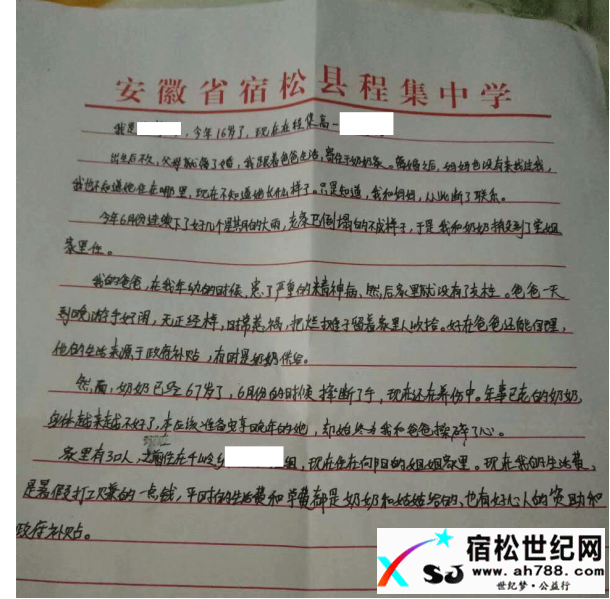 安徽省宿松县程集中学
我是 ，今年16岁了，现在在程集高一
出生后不久，父母就离了婚，我跟着爸爸生活，寄住于奶奶家。离婚之后，妈妈也没有来找过我，
我也不知道她住在哪里，现在不知道她长什么样了。只是知道，我和妈妈，从此断了联系。
今年6月份连续下了好几个星期的大雨，老家已倒塌的不成样子，于是我和奶奶搬到了堂姐
家里住。
我的爸爸，在我年幼的时候，患了严重的精神病，然后家里就没有了支柱。爸爸一天
到晚游手好闲，无正经样，时常惹祸，把烂摊子留着家里人收拾。好在爸爸还能自理，
他的生活来源于政府补贴，有时是奶奶供给。
然而，奶奶已经67岁了，6月份的时候摔断了手，现在还在养伤中。年事已高的奶奶，
身体越来越不好了，本应该准备安享晚年的她，却始终为我和爸爸操碎了心。
家里有3口人，之前住在千岭乡 组，现在住在向阳的姐姐家里。现在我的生活费，
是暑假打工赚的一点钱，平时的生活费和学费都是奶奶和姑姑给的，也有好心人的资助和
政府补贴。
宿松世纪网
XSJ
www.ah788.com
世纪梦·公益行